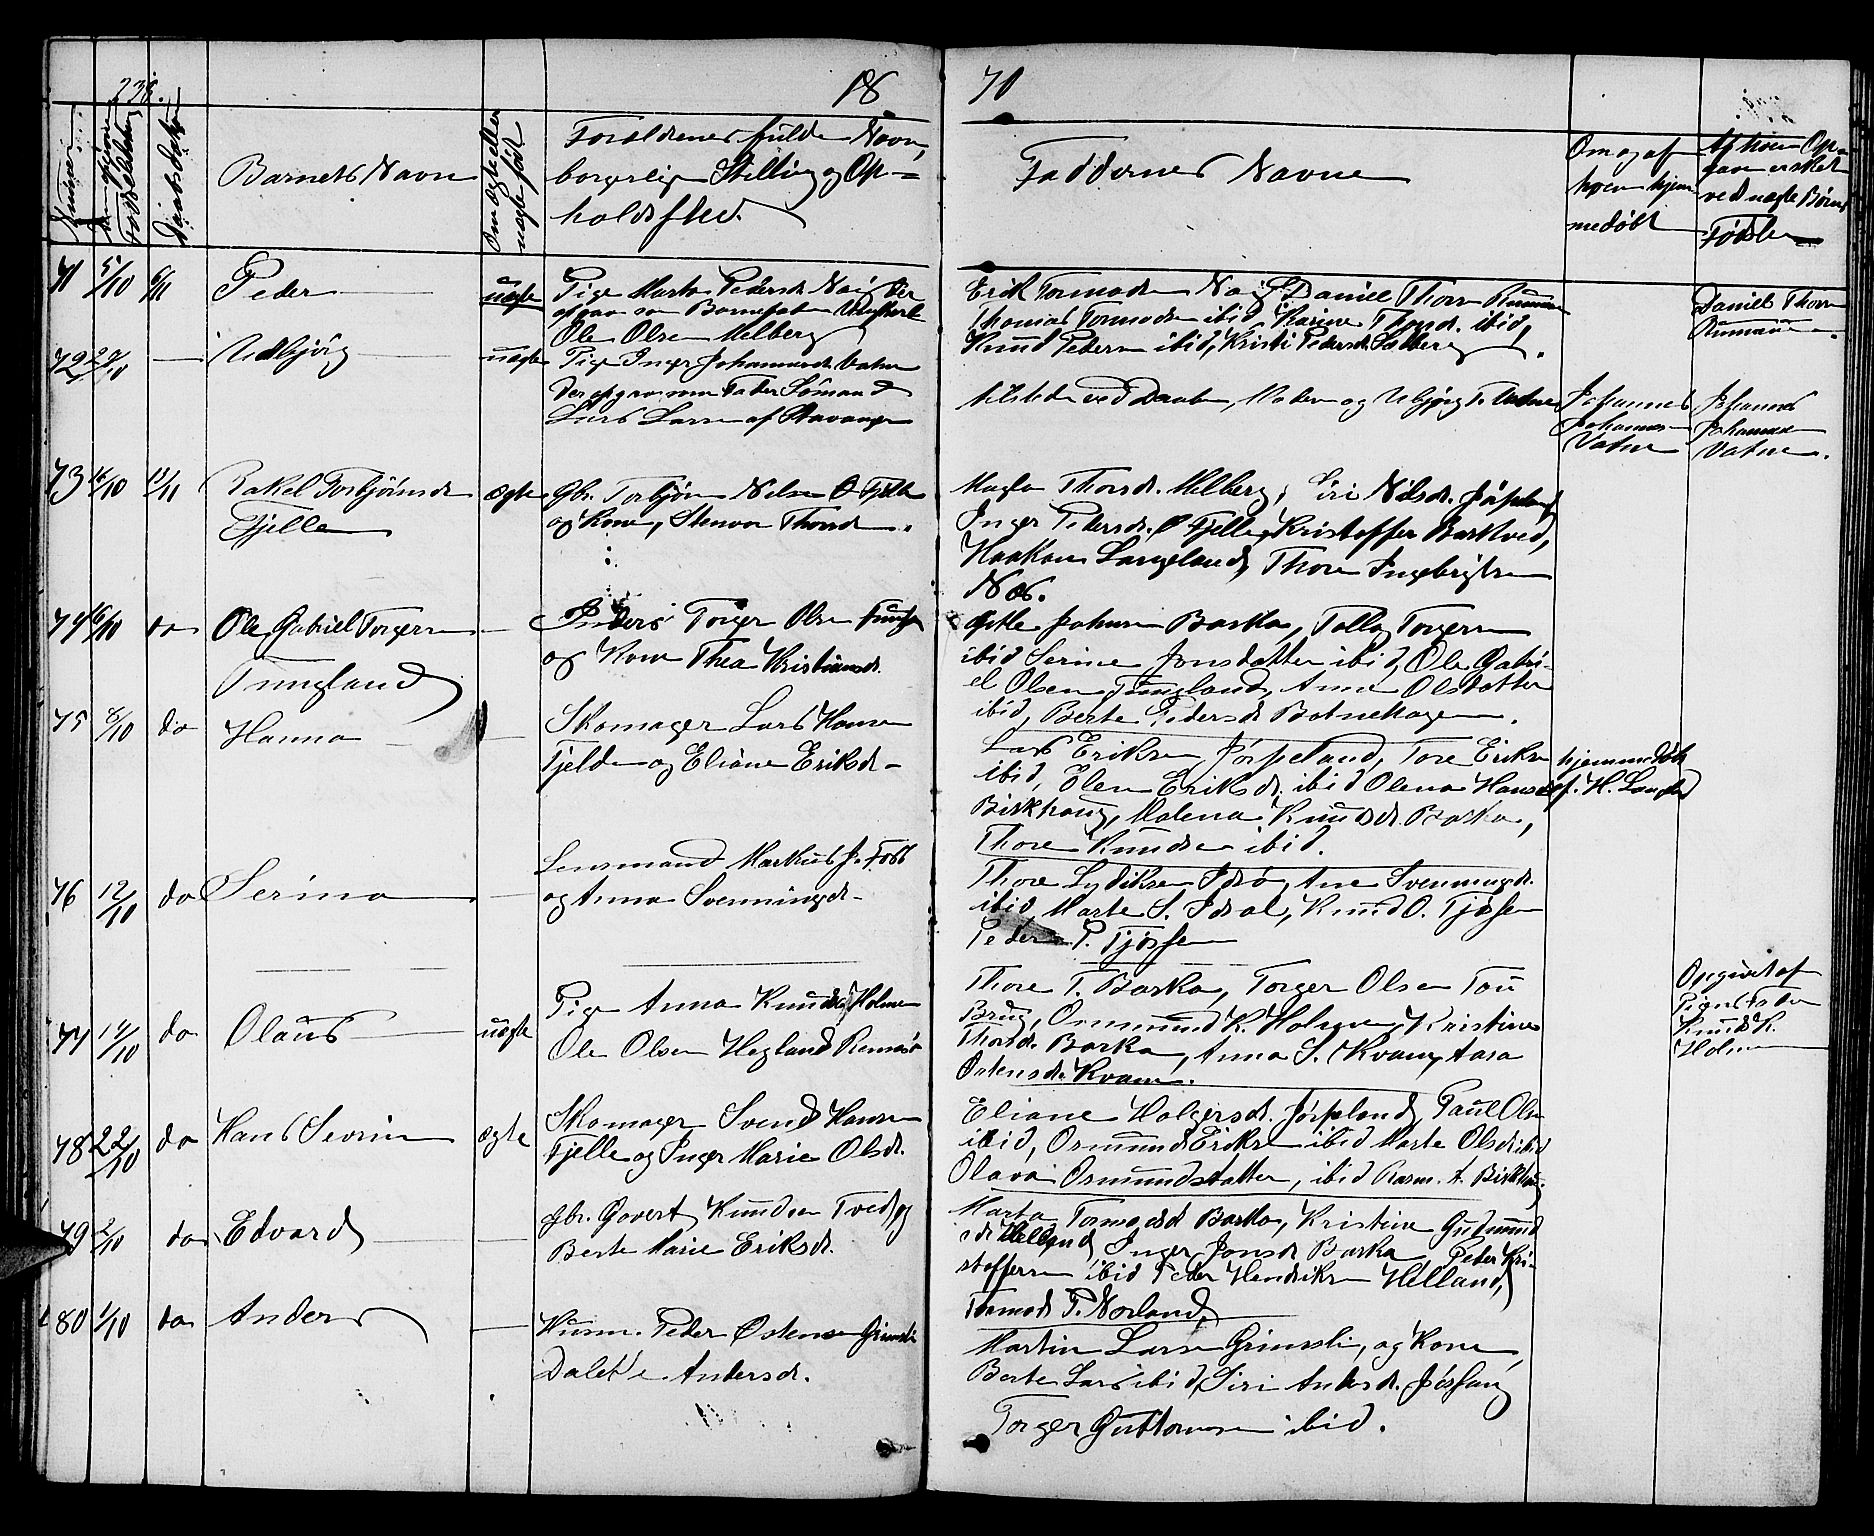 238.
18
70
Numer
Fødselsdag
Daabsdato
Barnets Navn
Om ægte eller
uægte født
Forældrenes fulde Navn,
borgerlige Stilling og Op=
holdssted.
Faddernes Navne
Om og af
hvem hjem
medøbt
Af hvem Op-
ved uægte Børns
Fødsler
71 5/10 6/11 Peder uægte
Pige Marta Pedersd. Næs, Der
opgav som Barnefader Ungkarl
Ole Olsen Melberg
Erik Tormodsen Næs, Daniel Thors.
Thomas Tormodsen ibid, Karine Thorsd. ibid,
Knud Peders. ibid, Kristi Pedersd.
Daniel Thors.
72 29/10 — Udbjörg uægte
Pige Inger Johannesd. Vatne
Der opgav som Fader Sømand
Lars Larsen af Stavanger
tilstede ved Daaben, Moder og
Johannes
Johannes
Vatne
Johannes
Johannes
Vatne.
73 16/10 13/11 Rakel Torbjörnsd.
Fjelle
ægte
Gbr. Torbjørn Nilsen Ø. Fjelle
og Kone, Stenvor Thorsd.
Thorsd. Melberg, Siri Nilsd. Jøssang
Inger Pedersd. Ø Fjelle, Kristoffer Barkved,
Haakon Langeland, Thore Ingebrigtsen
Næs.
74 16/10 do Ole Gabriel Torgersen
Tungland
—
Inders Torger Olsen Tungla
og Kone Thea Kristiansd.
Johnsen Barka, Tolla Torgersen
ibid Serine Jonsdatter ibid, Ole Gabri-
el Olsen Tungland, Anna Olsdatter
ibid, Berte Pedersd. Botnehagen.
75 8/10 do Hanna —
Skomager Lars Hansen
Fjelde og Eliane Eriksd.
Lars Eriksen Jørpeland, Tore Eriksen
ibid, Elen Eriksd. ibid Olena Hansd.
Birkhoug, Malena Knudsd. Barka,
Thore Knudsen ibid.
hjemmedøbt
af. H. Langeland
76 12/10 do Serina —
Lensmand Markus J. Foss
og Anna Svenningsd.
Thore Lydiksen Idsø, Ane Svenningsd.
ibid, Marte S. Idsal, Knud O. Tjøssem
Peder P. Tjøssem
77 14/10 do Olaus uægte
Pige Anna Knudsd. Holmen
Ole Olsen Hegland Rennesø
Thore T. Barka, Torger Olsen Tou
Brug, Osmund K. Holmen, Kristine
Thorsd. Barka, Anna S. Kvam, Aasa
Østensd. Kvam.
Opgivet af
Pigens Fader
Knud K.
Holmen
78 22/10 do Hans Severin ægte
Skomager Svend Hansen
Fjelle og Inger Marie Olsd.
Eliane Holgersd. Jørpeland, Paul Olsen
ibid, Osmund Eriksen ibid Marte Olsd ibid
Olava Osmundsdatter, ibid Rasm. A. Birkhoug
79 2/10 do Edvard —
gbr. Govert Knudsen Tved, og
Berte Marie Eriksd.
Marta Tormodsd. Barka, Kristine Gudmund
sd. Helland, Inger Jonsd. Barka Peder Kri-
stoffersen ibid Peder Henriksen Helland,
Tormod P. Norland,
80 1/10 do Anders —
Husm. Peder Østensen Grimsli
Dalet'e Andersd.
Martin Larsen Grimsli, og Kone
Berte Lars ibid, Siri Andersd. Jøssang
Torger Guttormsen ibid.